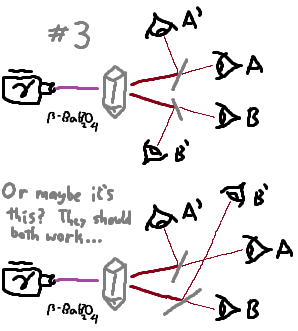 #3
A'
γ
A
β-BaBO₄
B
B'
Or maybe it's
this? They should
both work...
B'
A'
γ
A
β-BaBO₄
B